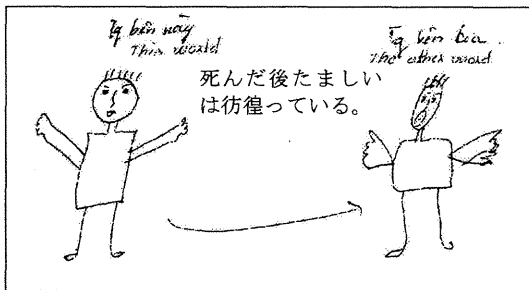 Tg bên này
This world
Tg bên kia
The other world
死んだ後たましい
は彷徨っている。